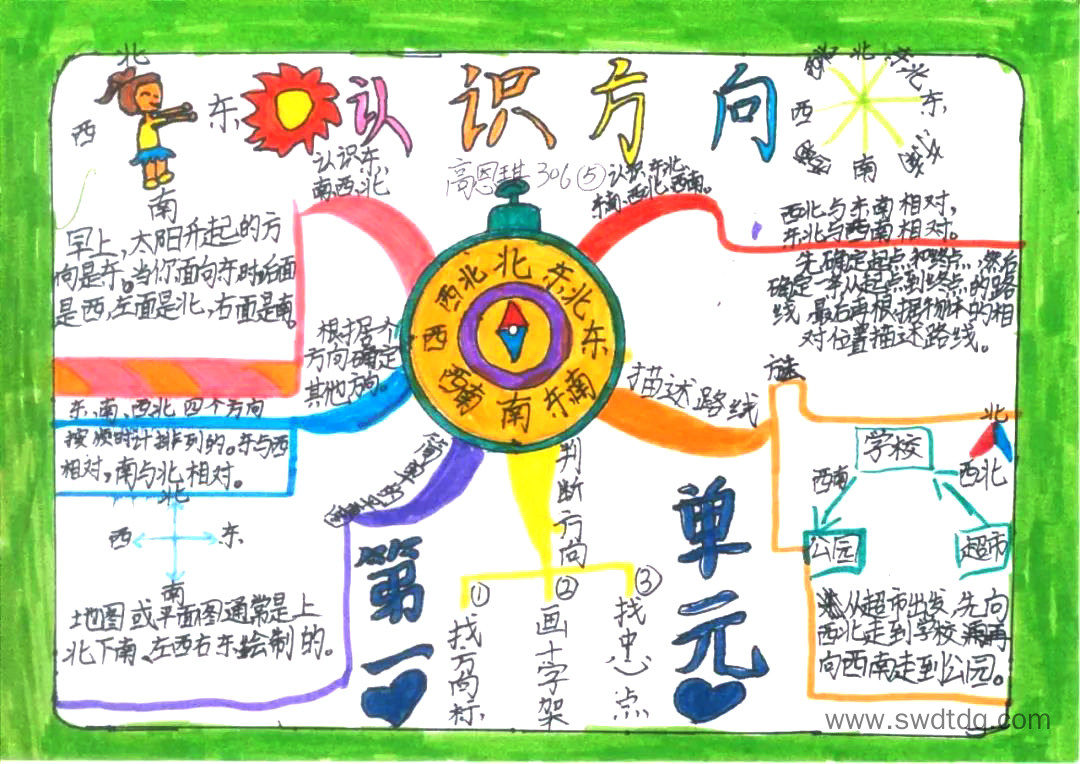 认识方向
高恩琪 306 ⑤
北
西
东
南
北
东
西
南
认识东、
南、西、北
早上,太阳升起的方
向是东。当你面向东时,后面
是西,左面是北,右面是南。
认识东北、
东南、西北、西南。
西北与东南相对,
东北与西南相对。
北
西北
东北
西
东
西南
南
东南
根据一个
方向确定
其他方向。
东、南、西、北四个方向
按顺时针排列的。东与西
相对,南与北相对。
北
西
东
南
地图或平面图通常是上
北下南、左西右东绘制的。
第一
单元
判断方向
①
找方向标
②
画十字架
③
找中心点
描述路线
方法
先确定起点和终点,然后
确定一条从起点到终点的路
线,最后再根据物体的相
对位置描述路线。
北
学校
西南
西北
公园
超市
从超市出发,先向
西北走到学校,再
向西南走到公园。
www.swdtdq.com